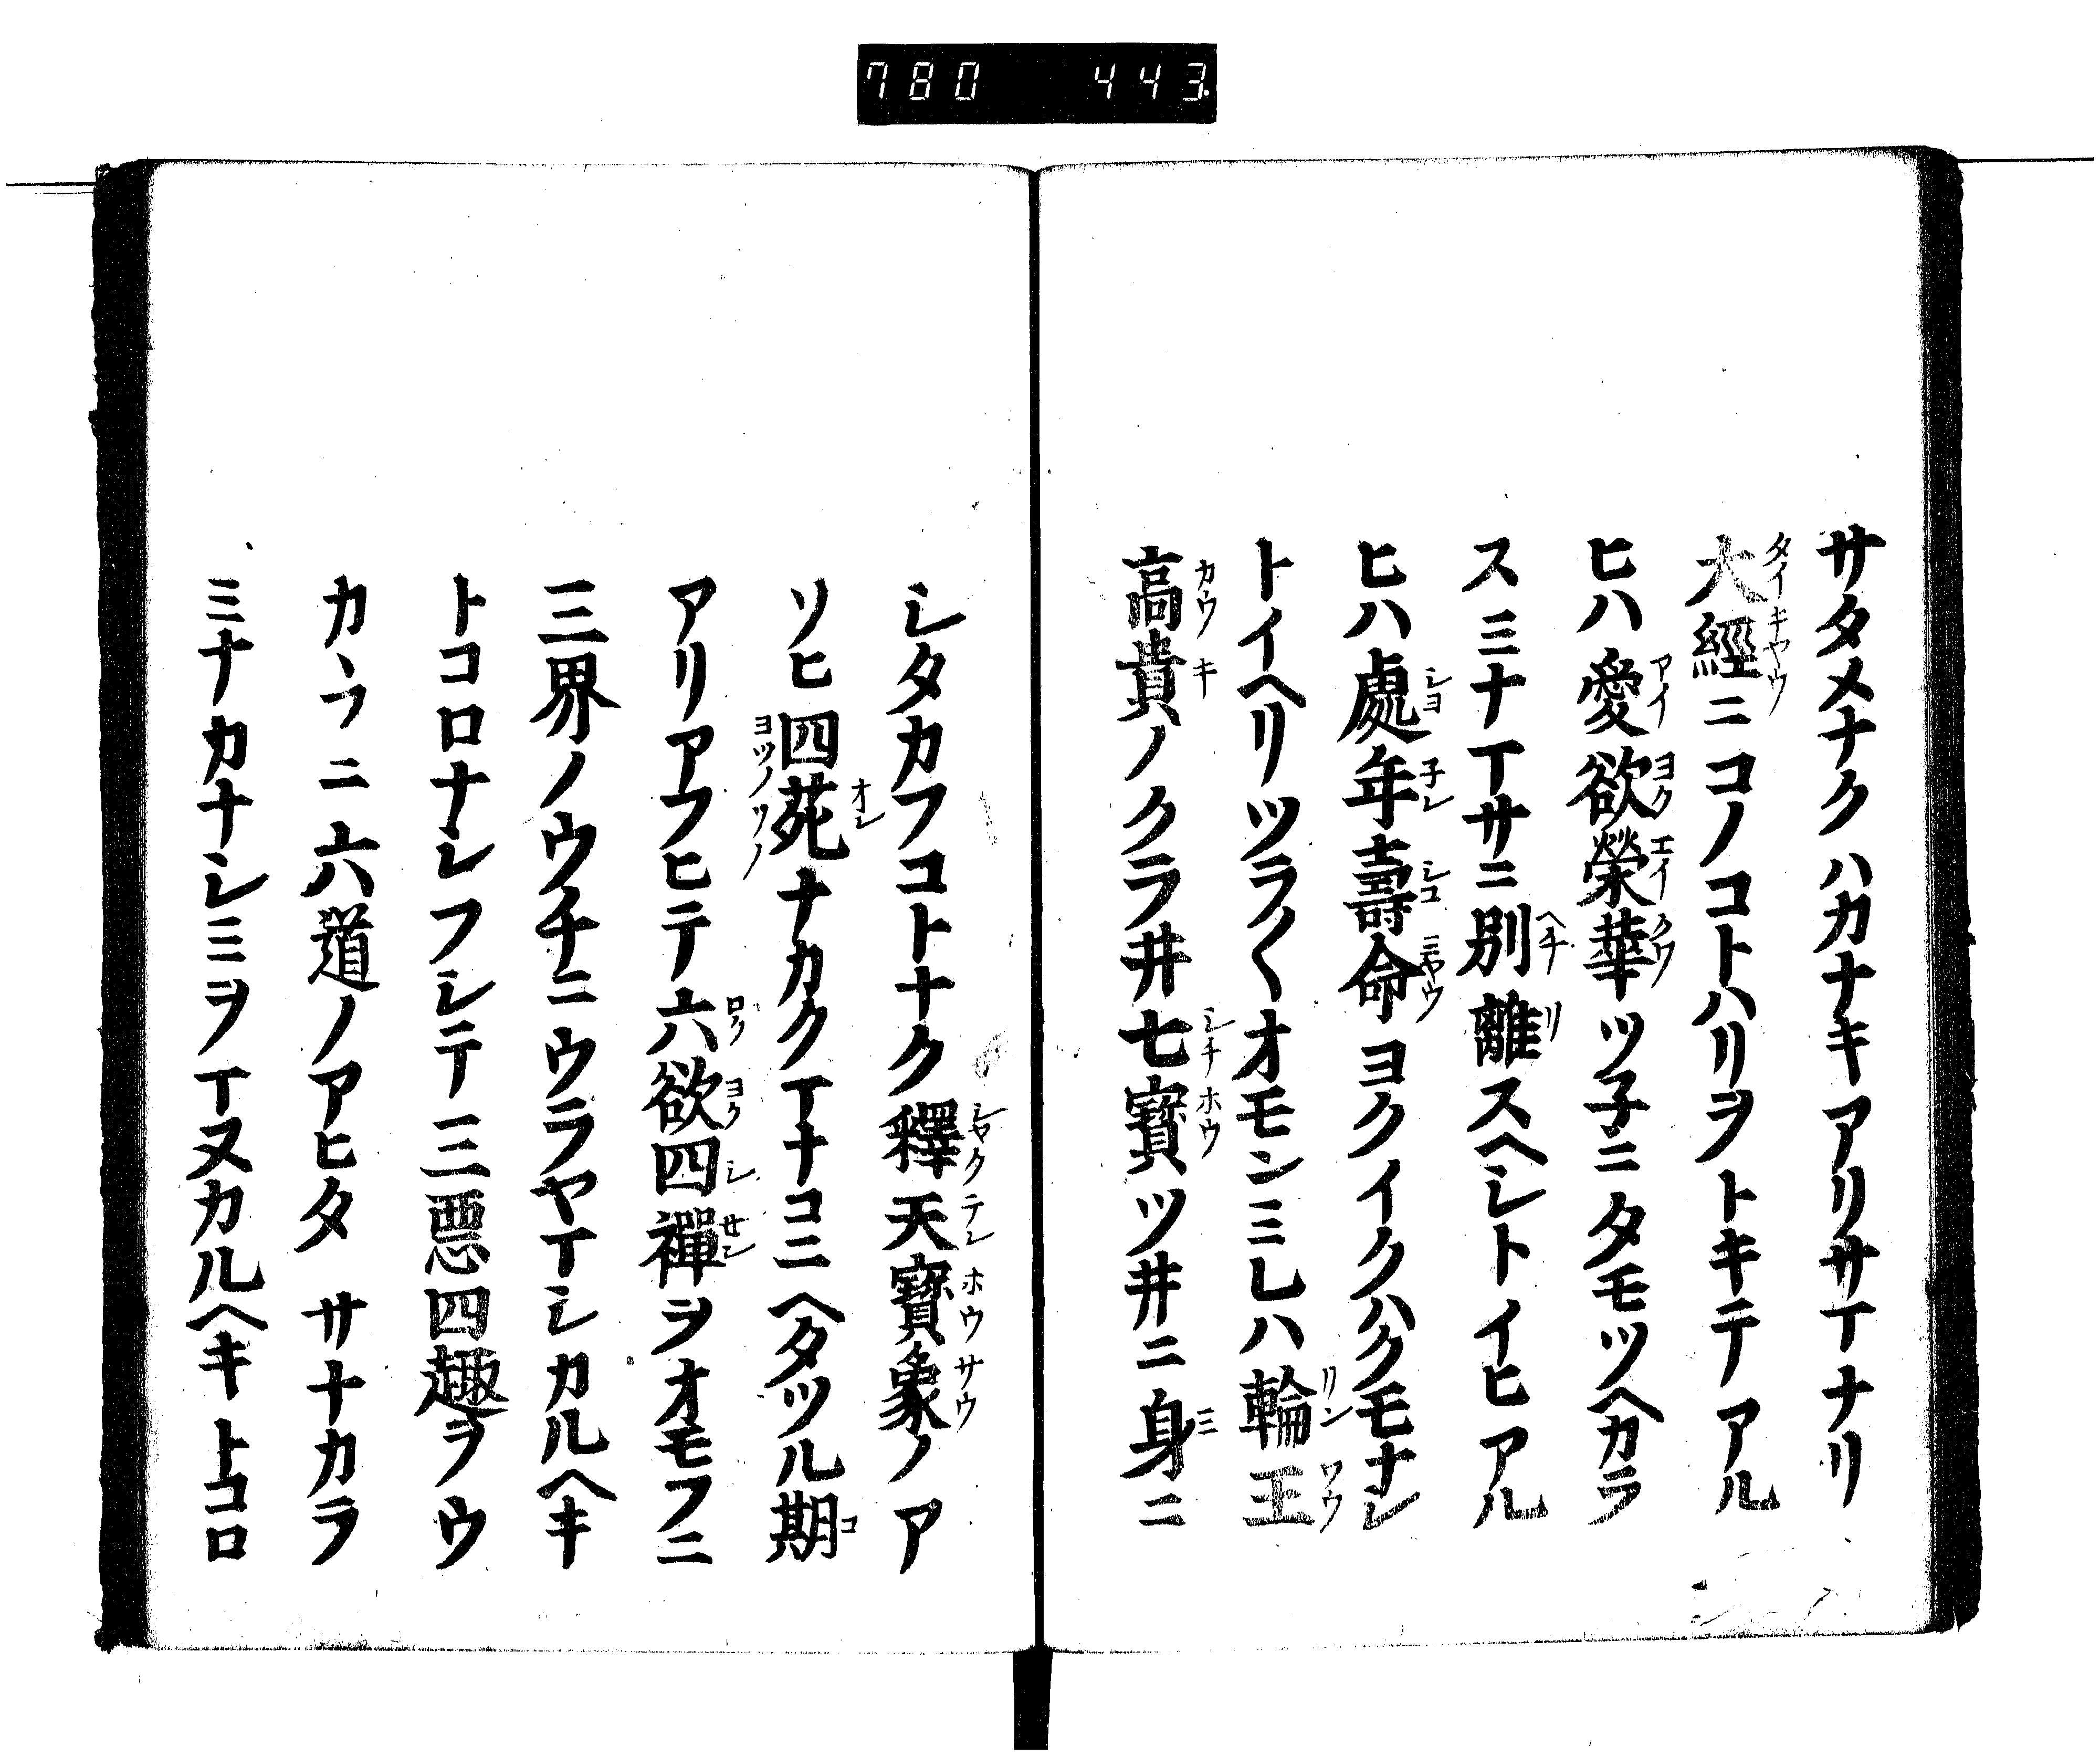 780 443
サタメナクハカナキアリサマナリ
大經ニコノコトハリヲトキテアル
ヒハ愛欲榮華ツ子ニタモツヘカラ
スミナマサニ別離スヘシトイヒアル
ヒハ處年壽命ヨクイクハクモナシ
トイヘリツラ〱オモンミレハ輪王
高貴ノクラ井七寳ツ井ニ身ニ
シタカフコトナク釋天寳象ノア
ソヒ四苑ナカクマナコニヘタツル期
アリアフヒテ六欲四禪ヲオモフニ
三界ノウチニウラヤマシカルヘキ
トコロナシフシテ三惡四趣ヲウ
カヽフニ六道ノアヒタサナカラ
ミナカナシミヲマヌカルヘキトコロ